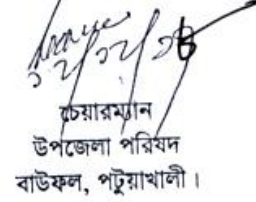 চেয়ারম্যান
উপজেলা পরিষদ
বাউফল, পটুয়াখালী।